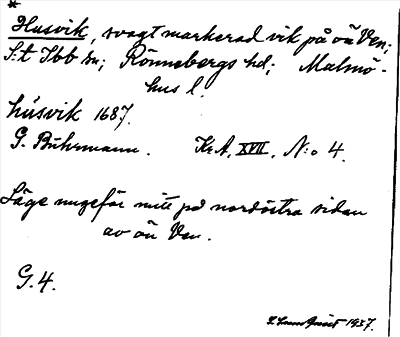 *
Husvik, svagt markerad vik på ön Ven;
S:t Ibb sn; Rönnebergs hd; Malmö-
hus l.
húsvik 1687.
G. Buhrmann. Kr.A, XVII, N:o 4.
Läge ungefär mitt på nordöstra sidan
av ön Ven.
G. 4.
1937.